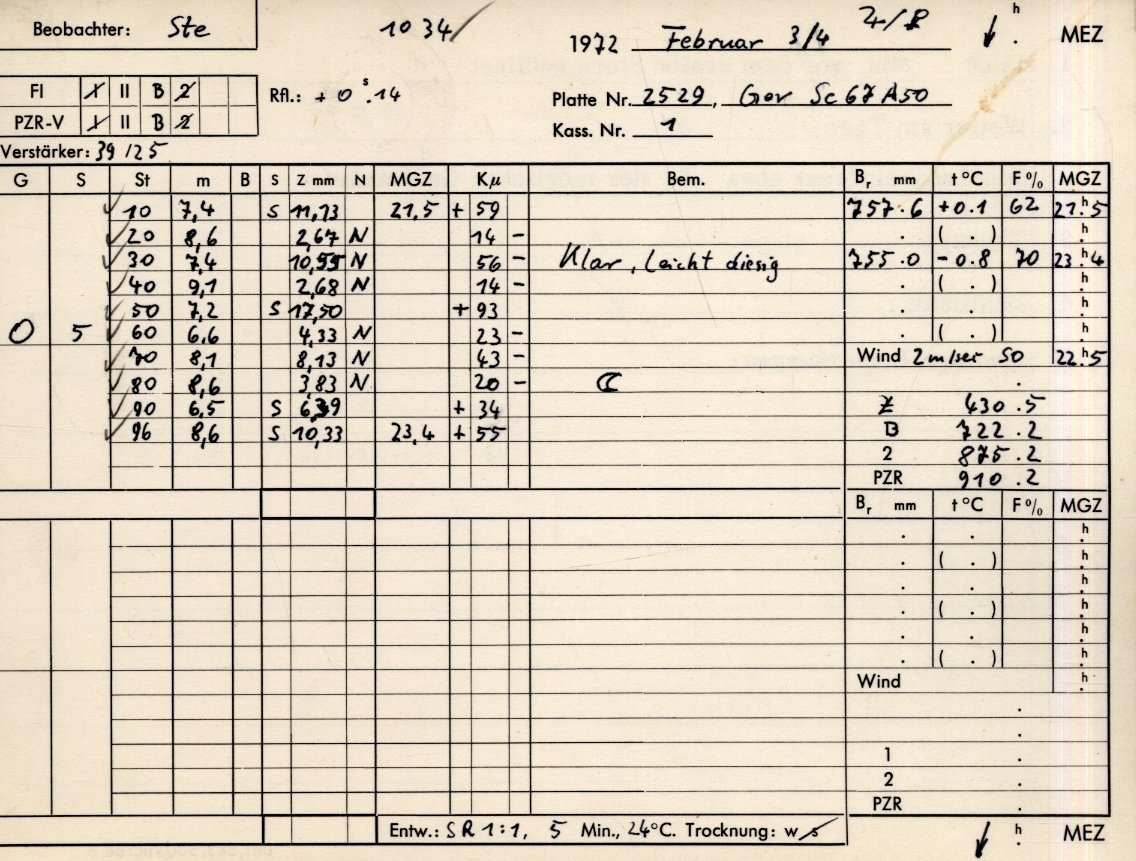 Beobachter: Ste 1034/ 1972 Februar 3/4 h . MEZ
FI I II B 2 Rfl.: + 0 s . 14 Platte Nr. 2529, Gev Sc67A50
PZR-V I II B 2 Kass. Nr. 1
Verstärker: 39/25
G S St m B S Z mm N MGZ Kµ Bem. Br mm t °C F % MGZ
10 7,4 S 11,13 21,5 + 59 757.6 +0.1 62 21h.5
20 8,6 2,67 N 14 - . ( . ) h.
30 7,4 10,55 N 56 - Klar, leicht diesig 755.0 -0.8 70 23h.4
40 9,1 2,68 N 14 - . ( . ) h.
50 7,2 S 17,50 + 93 . . h.
O 5 60 6,6 4,33 N 23 - . ( . ) h.
70 8,1 8,13 N 43 - Wind 2m/sec SO 22h.5
80 8,6 3,83 N 20 - ☾ .
90 6,5 S + 34 Z 430.5
96 8,6 S 10,33 23,4 + 55 B 722.2
2 875.2
PZR 910.2
Br mm t °C F % MGZ
. . h.
. ( . ) h.
. . h.
. ( . ) h.
. . h.
. ( . ) h.
Wind h.
.
.
1 .
2 .
PZR .
Entw.: SR 1:1, 5 Min., 24°C. Trocknung: w s h . MEZ